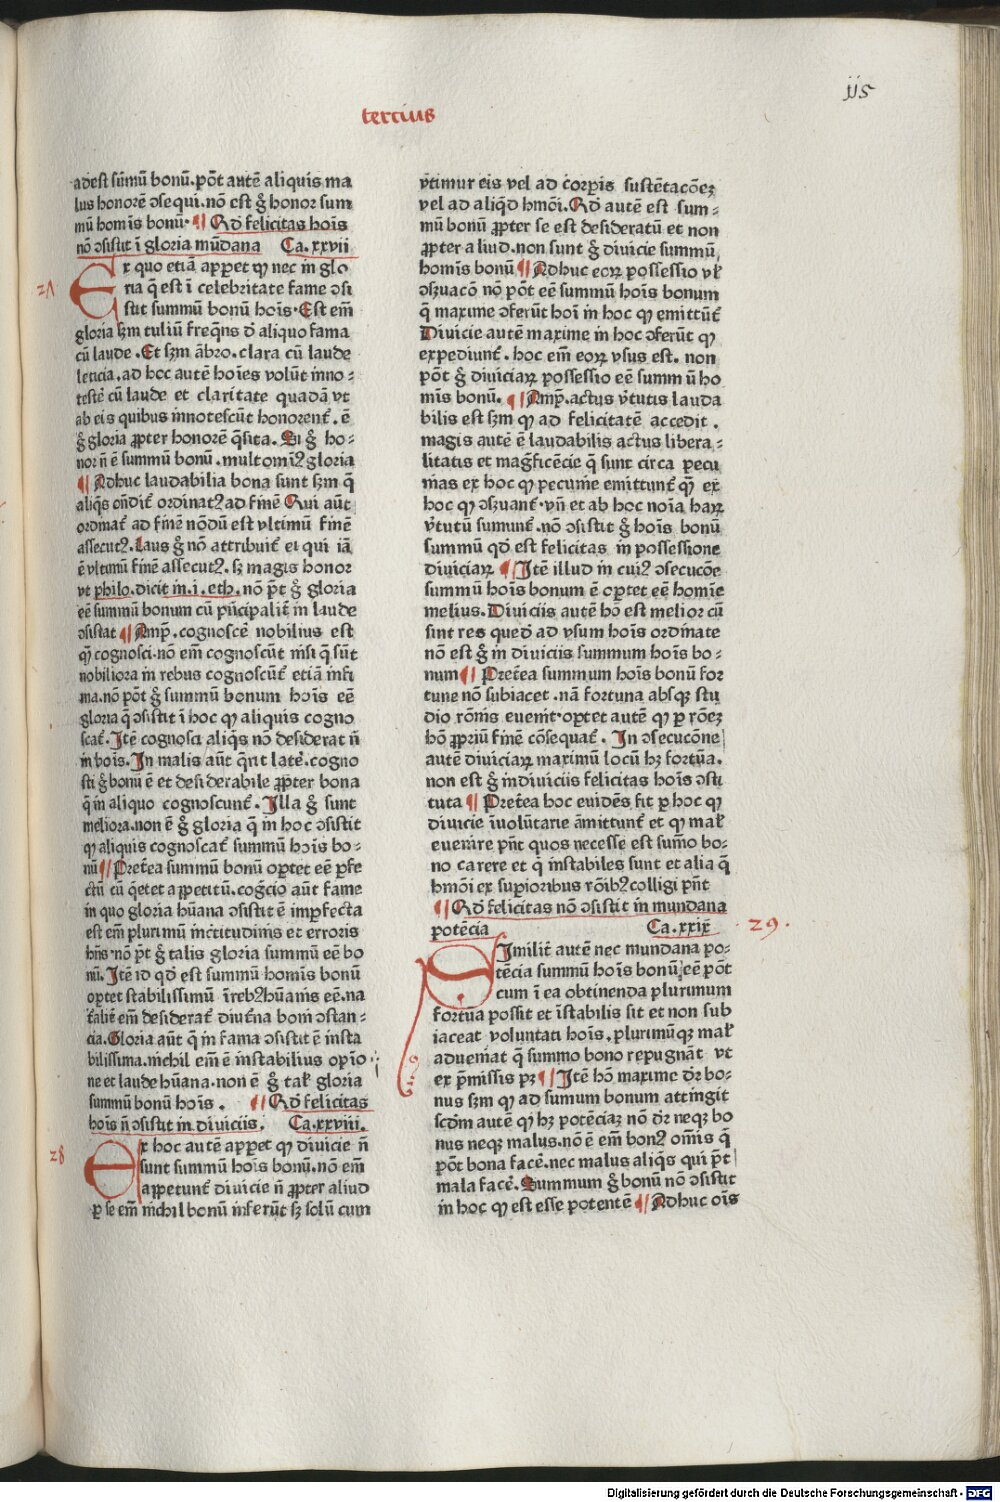 tercius
115
adest sūmū bonū. pōt autē aliquis ma
lus honorē ↄsequi. nō est gͦ honor sum
mū homīs bonū. ¶ Qd felicitas hoīs
nō ↄsistit ī gloria mūdana Ca. xxvii
27
Ex quo etiā apꝑet ꝙ nec in glo
ria q̄ est ī celebritate fame ↄsi
stit summū bonū hoīs. Est em̄
gloria sꝫm tuliū freq̄ns d̄ aliquo fama
cū laude. Et sꝫm ābro. clara cū laude
leticia. ad hoc autē hoīes volūt inno-
testē cū laude et claritate quadā vt
ab eis quibus innotescūt honorent̄. ē
gͦ gloria ꝓpter honorē q̄sita. Si gͦ ho-
nor n̄ ē summū bonū. multomīꝰ gloria
¶ Adhuc laudabilia bona sunt sꝫm q̄
aliq̄s on̄dit̄ ordinatꝰ ad finē Qui aūt
ordinat̄ ad finē nōdū est vltimū finē
assecutꝰ. Laus gͦ nō attribuit̄ ei qui iā
ē vltimū finē assecutꝰ. sꝫ magis honor
vt philo. dicit in. i. eth. nō p̄t gͦ gloria
eē summū bonum cū p̄ncipalit̄ in laude
ↄsistat ¶ Amp̄. cognoscē nobilius est
q̄ cognosci. nō em̄ cognoscūt nisi q̄ sūt
nobiliora in rebus cognoscūt̄ etiā infi
ma. nō pōt gͦ summū bonum hoīs eē
gloria q̄ ↄsistit ī hoc ꝙ aliquis cogno
scat̄. Itē cognosci aliq̄s nō desiderat n̄
in bois. In malis aūt q̄rit latē. cogno
sci gͦ bonū ē et desiderabile ꝓpter bona
q̄ in aliquo cognoscunt̄. Illa gͦ sunt
meliora. non ē gͦ gloria q̄ in hoc ↄsistit
ꝙ aliquis cognoscat̄ summū hoīs bo-
nū ¶ Pret̄ea summū bonū oꝑtet eē ꝑfe
ctū cū q̄etet appetitū. cogͨcio aūt fame
in quo gloria hūana ↄsistit ē imꝑfecta
est em̄ plurimū incͭitudinis et erroris
hn̄s. nō p̄t gͦ talis gloria summū eē bo
nū. Itē id qd est summū homīs bonū
oꝑtet stabilissimū ī rebꝰ hūaīs eē. na
t̄alit̄ em̄ desiderat̄ diut̄na boni ↄstan-
cia. Gloria aūt q̄ in fama ↄsistit ē insta
bilissima. nichil em̄ ē instabilius opīo
ne et laude hūana. non ē gͦ tal̄ gloria
summū bonū hoīs. ¶ Qd felicitas
hoīs n̄ ↄsistit in diuiciis. Ca. xxviii.
28
Ex hoc autē apꝑet ꝙ diuicie n̄
sunt summū hoīs bonū. nō em̄
appetunt̄ diuicie n̄ ꝓpter aliud
ꝑ se em̄ nichil bonū inferūt sꝫ solū cum
vtimur eis vel ad corꝑis sustētacōeꝫ
vel ad aliqͥd hmōi. Qd autē est sum-
mū bonū ꝓpter se est desideratū et non
ꝓpter aliud. non sunt gͦ diuicie summū
homīs bonū ¶ Adhuc eoꝝ possessio vl̄
ↄsẜuacō nō pōt eē summū hoīs bonum
q̄ maxime ↄferūt hoī in hoc ꝙ emittūt̄
Diuicie autē maxime in hoc ↄferūt ꝙ
expediunt̄. hoc em̄ eoꝝ vsus est. non
pōt gͦ diuiciaꝝ possessio eē summū ho
mīs bonū. ¶ Amp̄. actus v̄tutis lauda
bilis est sꝫm ꝙ ad felicitatē accedit.
magis autē ē laudabilis actus libera-
litatis et magͥficēcie q̄ sunt circa pecu
nias ex hoc ꝙ pecunie emittunt̄ q̄ ex
hoc ꝙ ↄsẜuant̄. vn̄ et ab hoc noīa haꝝ
v̄tutū sumunt̄. nō ↄsistit gͦ hoīs bonū
summū qd est felicitas in possessione
diuiciaꝝ ¶ Itē illud in cuiꝰ ↄsecucōe
summū hoīs bonum ē oꝑtet eē homīe
melius. Diuiciis autē hō est melior cū
sint res quedā ad vsum hoīs ordinate
nō est gͦ in diuiciis summum hoīs bo-
num ¶ Pret̄ea summum hoīs bonū for
tune nō subiacet. nā fortuna absqꝫ stu
dio rōnis euenit. oꝑtet autē ꝙ ꝑ rōeꝫ
hō ꝓpriū finē cōsequat̄. In ↄsecucōne
autē diuiciaꝝ maximū locū hꝫ fortūa.
non est gͦ in diuiciis felicitas hoīs ↄsti
tuta ¶ Pret̄ea hoc euidēs fit ꝑ hoc ꝙ
diuicie īuolūtarie āmittunt̄ et ꝙ mal̄
euenire pn̄t quos necesse est sumo bo-
no carere et q̄ instabiles sunt et alia q̄
hmōi ex suꝑioribus rōibꝰ colligi pn̄t
¶ Qd felicitas nō ↄsistit in mundana
potēcia Ca. xxix
29.
Similit̄ autē nec mundana po-
tēcia summū hoīs bonū eē pōt
cum ī ea obtinenda plurimum
fortūa possit et īstabilis sit et non sub
iaceat voluntati hoīs. plurimūqꝫ mal̄
adueniat q̄ summo bono repugnāt vt
ex p̄missis pꝫ ¶ Itē hō maxime dr̄ bo-
nus sꝫm ꝙ ad sumum bonum attingit
scd̄m autē ꝙ hꝫ potēciaꝫ nō dr̄ neqꝫ bo
nus neqꝫ malus. nō ē em̄ bonꝰ om̄is q̄
pōt bona facē. nec malus aliq̄s qui p̄t
mala facē. Summum gͦ bonū nō ↄsistit
in hoc ꝙ est esse potentē ¶ Adhuc oīs
Digitalisierung gefördert durch die Deutsche Forschungsgemeinschaft - DFG